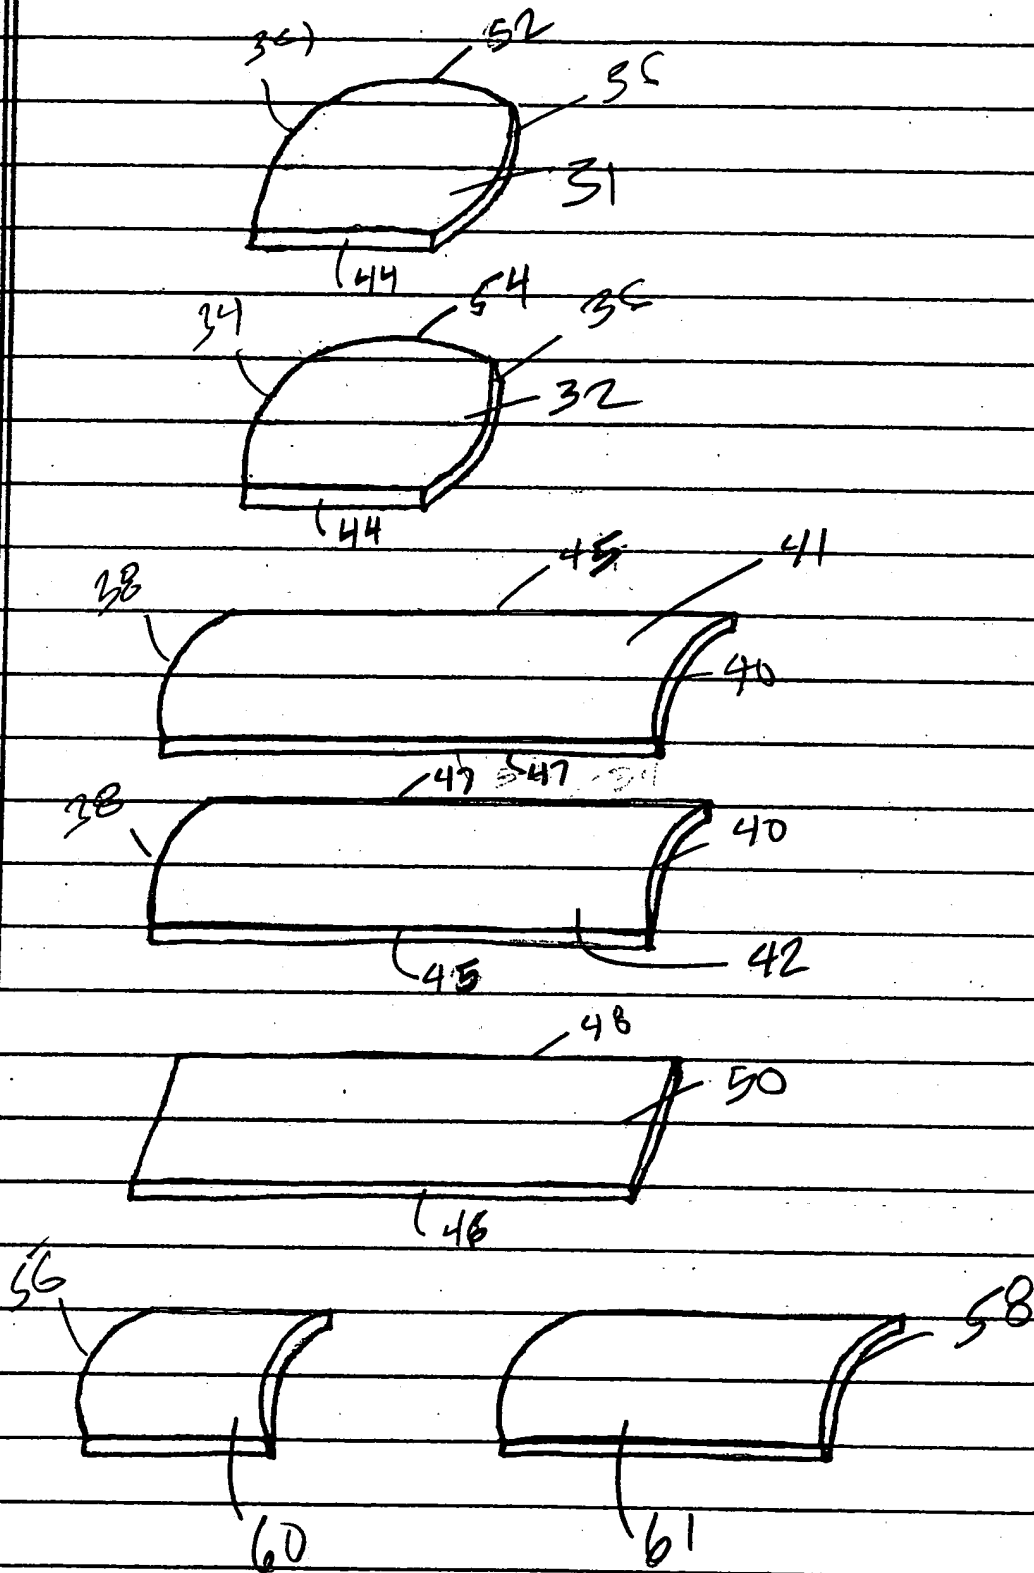 52
31
44
34
54
32
44
45
41
38
40
47
47
38
40
45
42
48
50
46
56
58
60
61